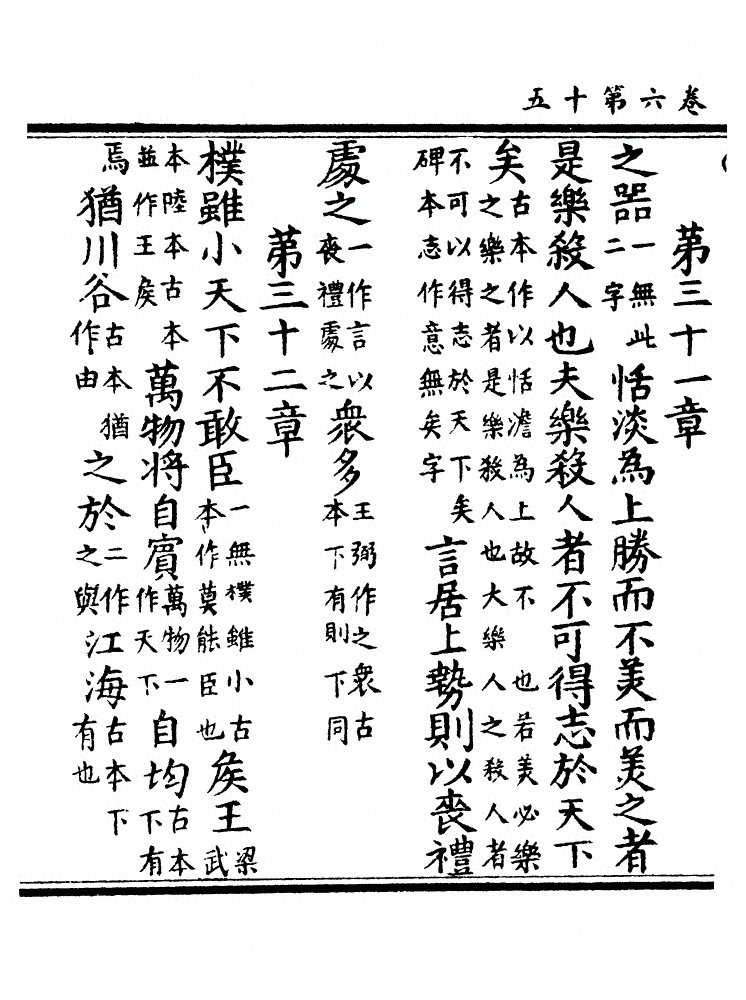 卷六第十五
第三十一章
之器一無此二字恬淡為上勝而不美而美之者
是樂殺人也夫樂殺人者不可得志於天下
矣古本作以恬澹為上故不　也若美必樂之樂之者是樂殺人也大樂人之殺人者
不可以得志於天下矣碑本志作意無矣字言居上勢則以喪禮
處之一作言以喪禮處之衆多王弼作之衆古本下有則下同
第三十二章
樸雖小天下不敢臣一無樸雖小古本作莫能臣也侯王梁武
本陸本古本並作王侯萬物将自賓萬物一作天下自均古本下有
焉猶川谷古本猶作由之於二作之與江海古本下有也